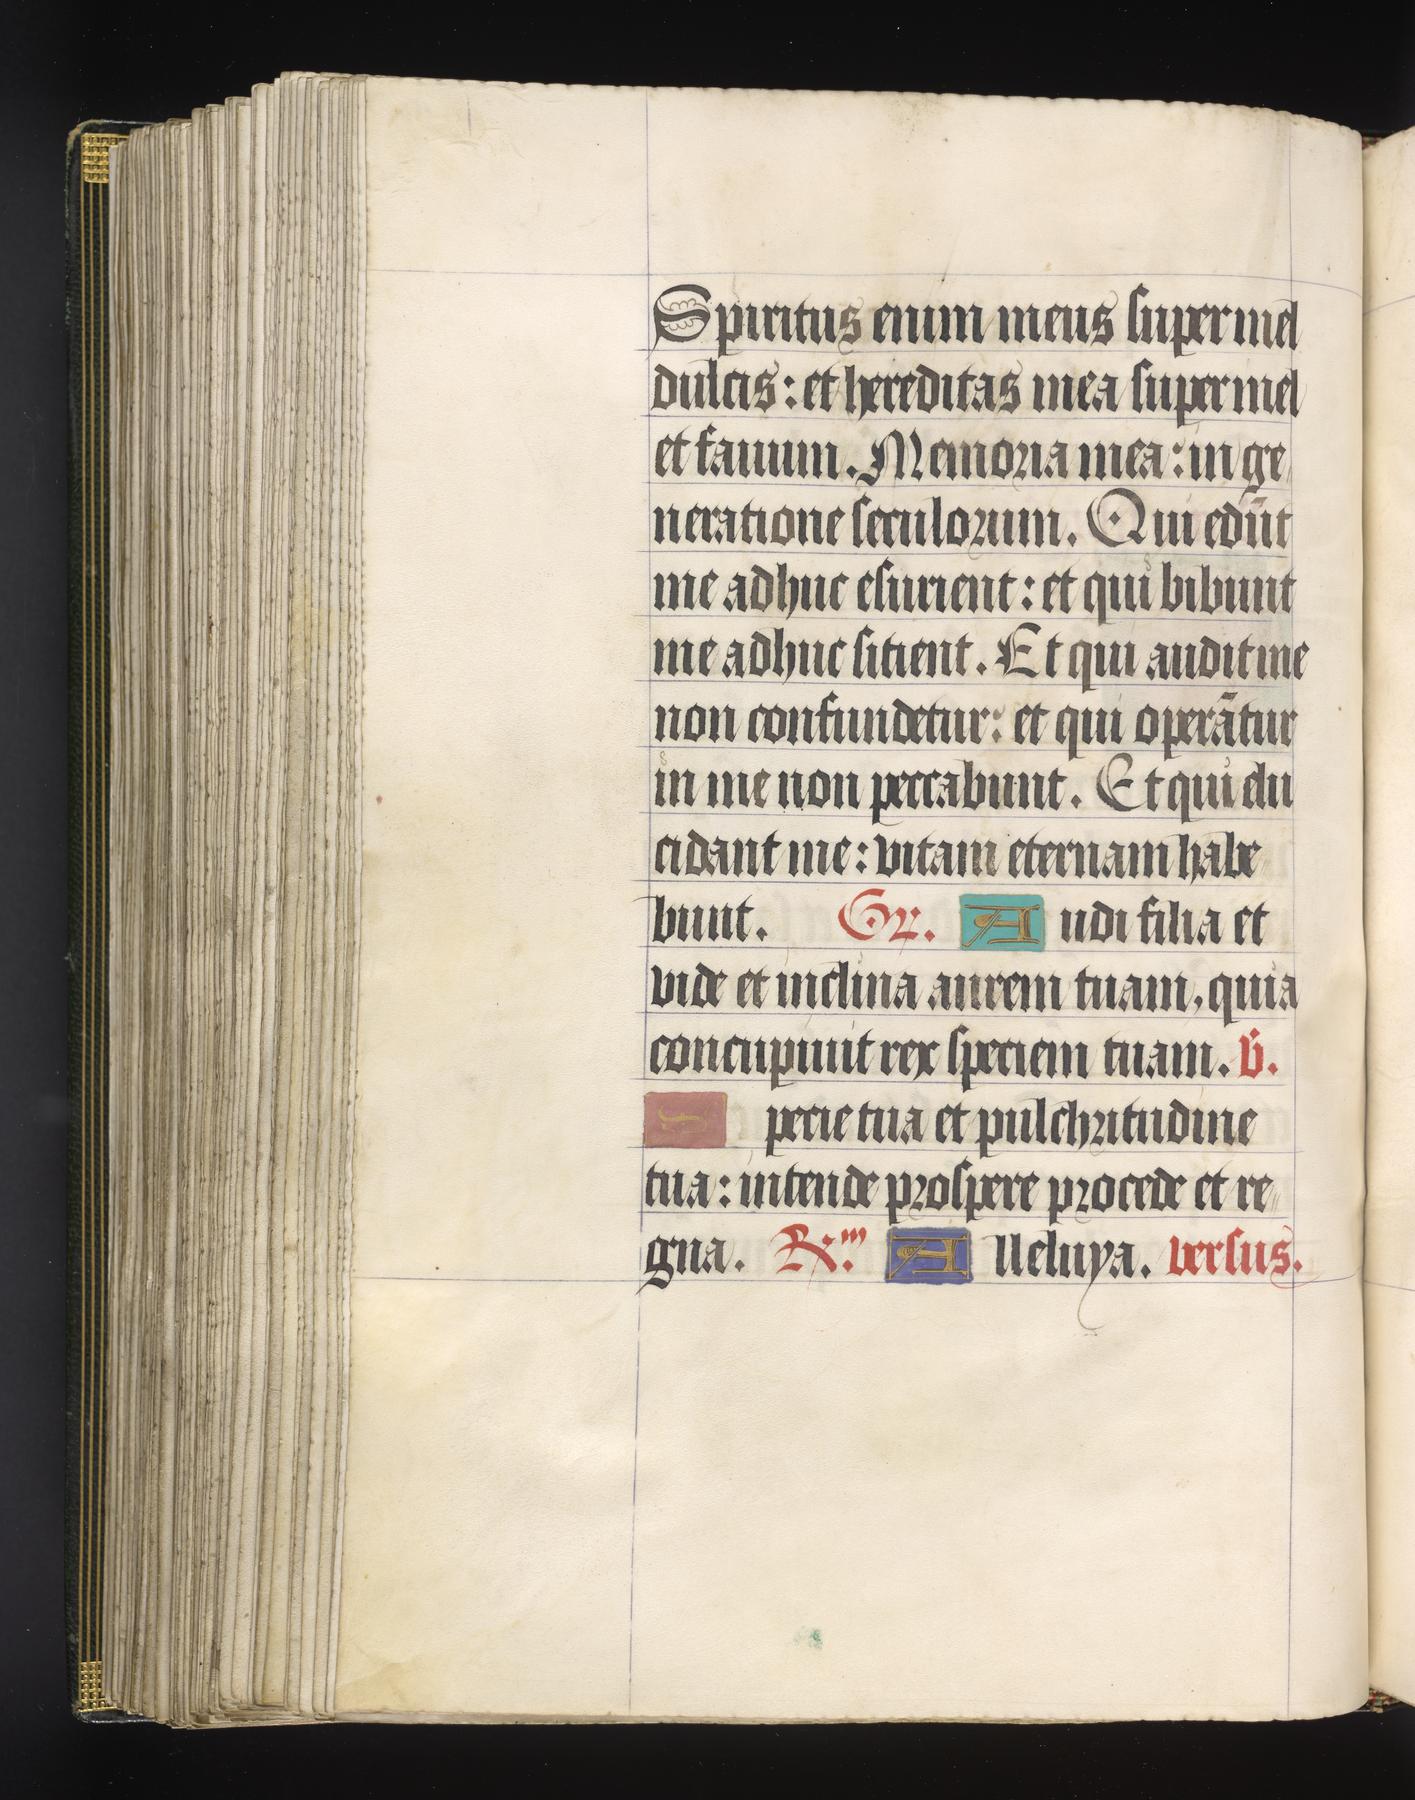 Spiritus enim meus super mel
dulcis: et hereditas mea super mel
et fauum. Memoria mea: in ge
neratione seculorum. Qui edūt
me adhuc esurient: et qui bibunt
me adhuc sitient. Et qui audit me
non confundetur: et qui operātur
in me non peccabunt. Et qui elu
cidant me: vitam eternam habe
bunt. Gr. Audi filia et
vide et inclina aurem tuam, quia
concupiuit rex speciem tuam. V̄.
Specie tua et pulchritudine
tua: intende prospere procede et re
gna. R̃.m Alleluya. versus.